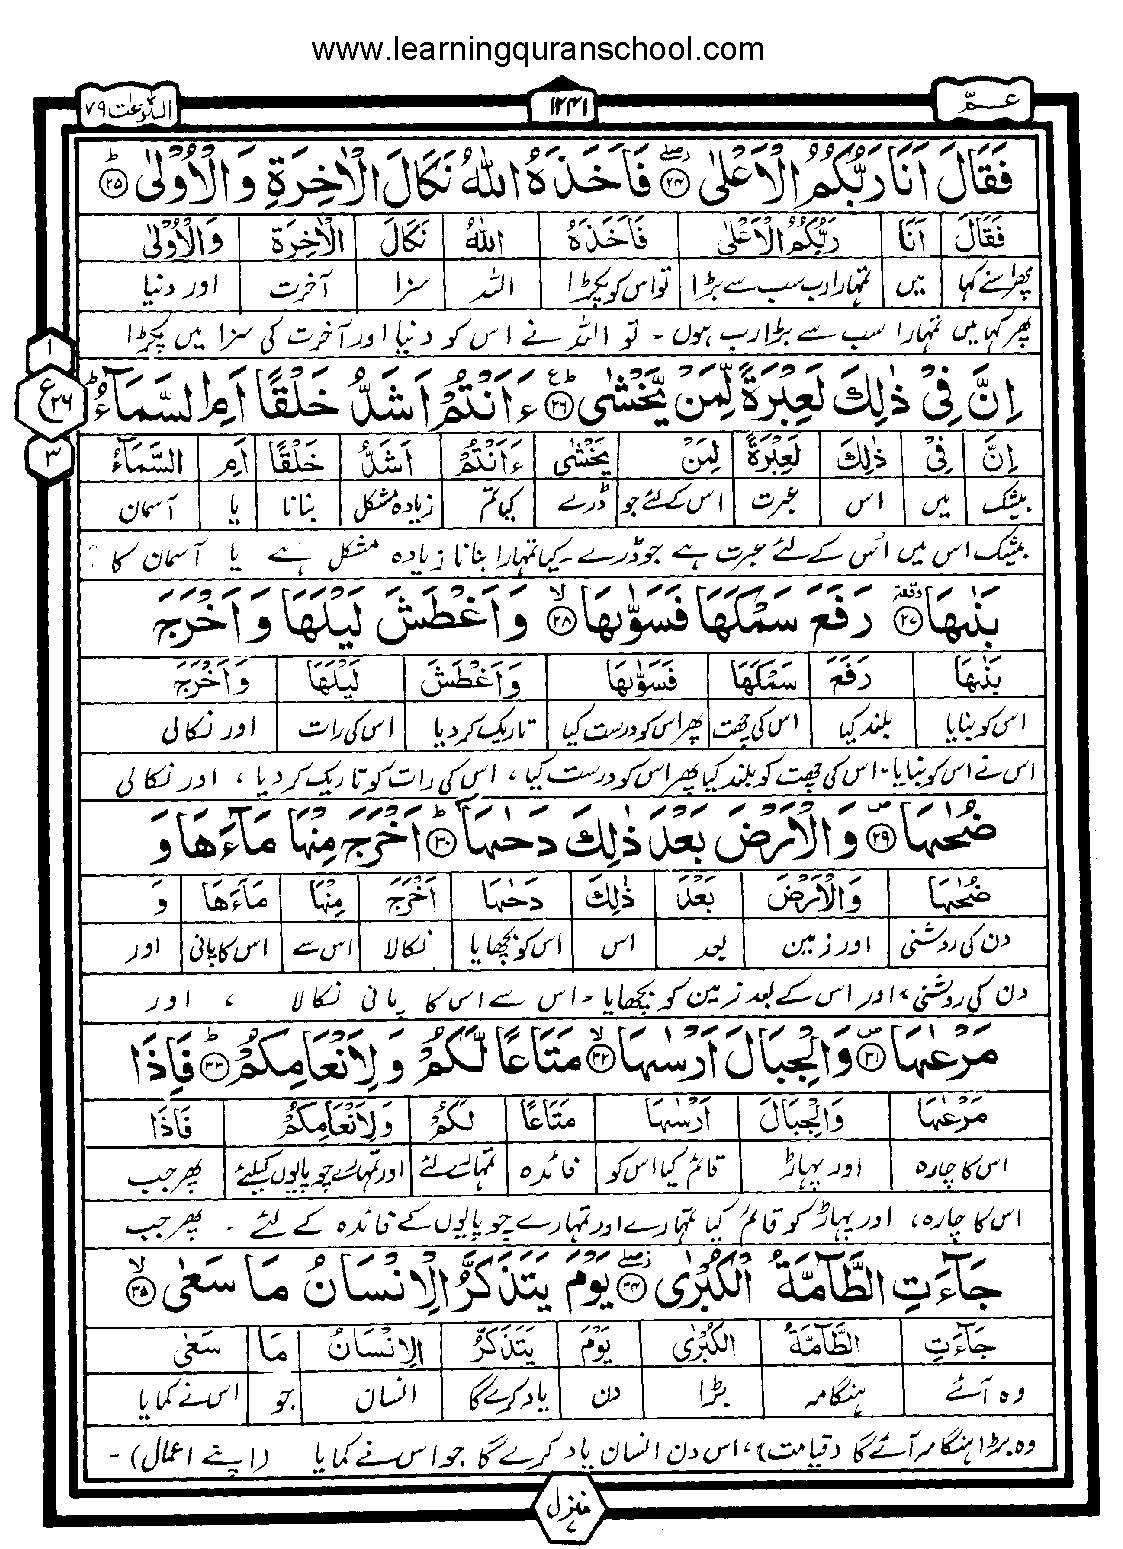 www.learningquranschool.com
عـمّ ١٢٤١ النّٰزعٰت ٧٩
فَقَالَ اَنَا رَبُّكُمُ الْاَعْلٰى ۝٢٤ فَاَخَذَهُ اللّٰهُ نَكَالَ الْاٰخِرَةِ وَالْاُوْلٰى ۝٢٥
فَقَالَ اَنَا رَبُّكُمُ الْاَعْلٰى فَاَخَذَهُ اللّٰهُ نَكَالَ الْاٰخِرَةِ وَالْاُوْلٰى
پھر اسنے کہا میں تمہارا رب سب سے بڑا تو اس کو پکڑا اللہ سزا آخرت اور دنیا
پھر کہا میں تمہارا سب سے بڑا رب ہوں - تو اللہ نے اس کو دنیا اور آخرت کی سزا میں پکڑا
١
ع ٢٦
٣
اِنَّ فِيْ ذٰلِكَ لَعِبْرَةً لِّمَنْ يَّخْشٰى ۝٢٦ ءَاَنْتُمْ اَشَدُّ خَلْقًا اَمِ السَّمَآءُ
اِنَّ فِيْ ذٰلِكَ لَعِبْرَةً لِمَنْ يَخْشٰى ءَاَنْتُمْ اَشَدُّ خَلْقًا اَمِ السَّمَآءُ
بیشک میں اس عبرت اس کے لئے جو ڈرے کیا تم زیادہ مشکل بنانا یا آسمان
بیشک اس میں اُس کے لئے عبرت ہے جو ڈرے - کیا تمہارا بنانا زیادہ مشکل ہے یا آسمان کا ؟
بَنٰىهَا ۝٢٧ رَفَعَ سَمْكَهَا فَسَوّٰىهَا ۝٢٨ وَاَغْطَشَ لَيْلَهَا وَاَخْرَجَ
بَنٰىهَا رَفَعَ سَمْكَهَا فَسَوّٰىهَا وَاَغْطَشَ لَيْلَهَا وَاَخْرَجَ
اس کو بنایا بلند کیا اس کی چھت پھر اس کو درست کیا تاریک کر دیا اس کی رات اور نکالی
اس نے اس کو بنایا - اس کی چھت کو بلند کیا پھر اس کو درست کیا، اس کی رات کو تاریک کر دیا، اور نکالی
ضُحٰىهَا ۝٢٩ وَالْاَرْضَ بَعْدَ ذٰلِكَ دَحٰىهَا ۝٣٠ اَخْرَجَ مِنْهَا مَآءَهَا وَ
ضُحٰىهَا وَالْاَرْضَ بَعْدَ ذٰلِكَ دَحٰىهَا اَخْرَجَ مِنْهَا مَآءَهَا وَ
دن کی روشنی اور زمین بعد اس اس کو بچھایا نکالا اس سے اس کا پانی اور
دن کی روشنی، اور اس کے بعد زمین کو بچھایا - اس سے اس کا پانی نکالا ، اور
مَرْعٰىهَا ۝٣١ وَالْجِبَالَ اَرْسٰىهَا ۝٣٢ مَتَاعًا لَّكُمْ وَلِاَنْعَامِكُمْ ۝٣٣ فَاِذَا
مَرْعٰىهَا وَالْجِبَالَ اَرْسٰىهَا مَتَاعًا لَكُمْ وَلِاَنْعَامِكُمْ فَاِذَا
اس کا چارہ اور پہاڑ قائم کیا اس کو فائدہ تمہارے لئے اور تمہارے چوپایوں کیلئے پھر جب
اس کا چارہ، اور پہاڑ کو قائم کیا تمہارے اور تمہارے چوپایوں کے فائدہ کے لئے - پھر جب
جَآءَتِ الطَّآمَّةُ الْكُبْرٰى ۝٣٤ يَوْمَ يَتَذَكَّرُ الْاِنْسَانُ مَا سَعٰى ۝٣٥
جَآءَتِ الطَّآمَّةُ الْكُبْرٰى يَوْمَ يَتَذَكَّرُ الْاِنْسَانُ مَا سَعٰى
وہ آئے ہنگامہ بڑا دن یاد کرے گا انسان جو اس نے کمایا
وہ بڑا ہنگامہ آئے گا (قیامت)، اس دن انسان یاد کرے گا جو اس نے کمایا (اپنے اعمال) -
منزل ٧